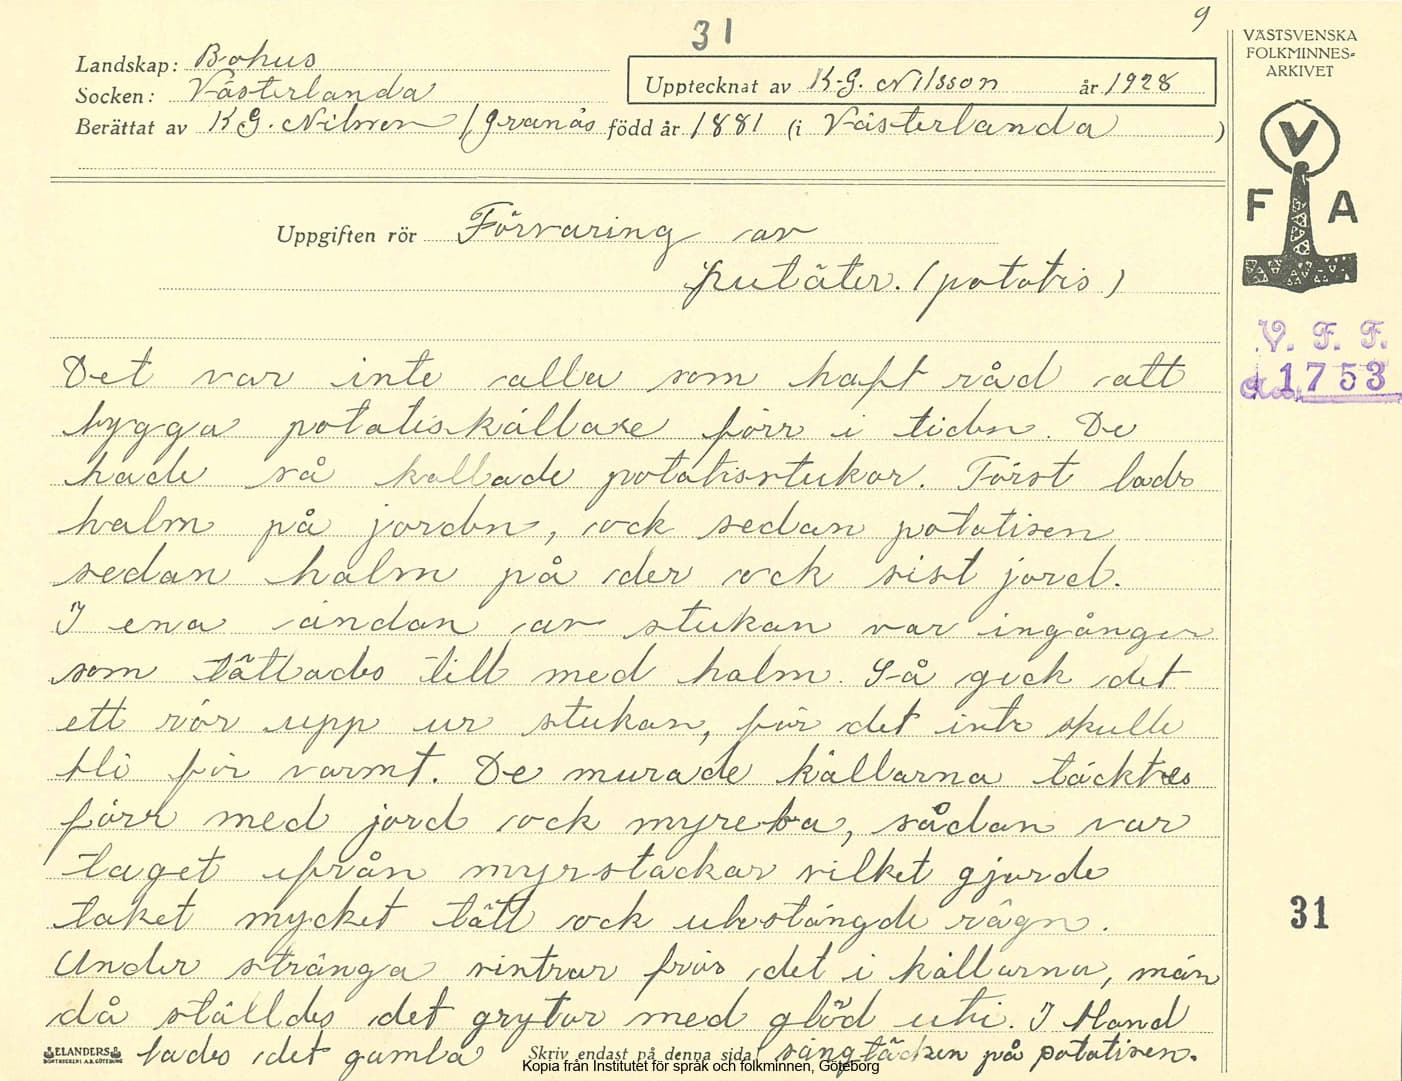 31
9
Landskap: Bohus
Socken: Västerlanda
Upptecknat av K.G. Nilsson år 1928
Berättat av K G. Nilsson / Granås född år 1881 (i Västerlanda )
Uppgiften rör Förvaring av
putäter. (potatis)
Det var inte alla som haft råd att
bygga potatiskällare förr i tiden. De
hade så kallade potatisstukor. Först lades
halm på jorden, ock sedan potatisen
sedan halm på der ock sist jord.
I ena ändan av stukan var ingången
som tättades till med halm. Så gick det
ett rör upp ur stukan, för det inte skulle
bli för varmt. De murade källarna täcktes
förr med jord ock myreba, sådan var
taget ifrån myrstackar vilket gjorde
taket mycket tätt ock utestängde rägn.
Under stränga vintrar frös det i källarna, män
då ställdes det grytor med glöd uti. I bland
lades det gamla sängtäcken på potatisen.
ELANDERS
BOKTRYCKERI A.B. GÖTEBORG
Skriv endast på denna sida!
Kopia från Institutet för språk och folkminnen, Göteborg
VÄSTSVENSKA
FOLKMINNES-
ARKIVET
V
F A
V. F. F.
1753
31